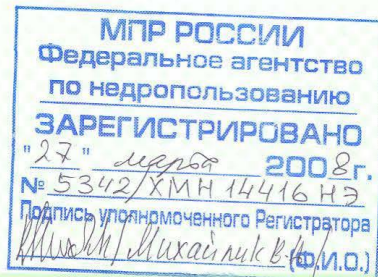 МПР РОССИИ
Федеральное агентство
по недропользованию
ЗАРЕГИСТРИРОВАНО
"27" марта 2008г.
№ 5342/ХМН 14416 НЭ
Подпись уполномоченного Регистратора
/Михайлик В.Н./
(Ф.И.О.)